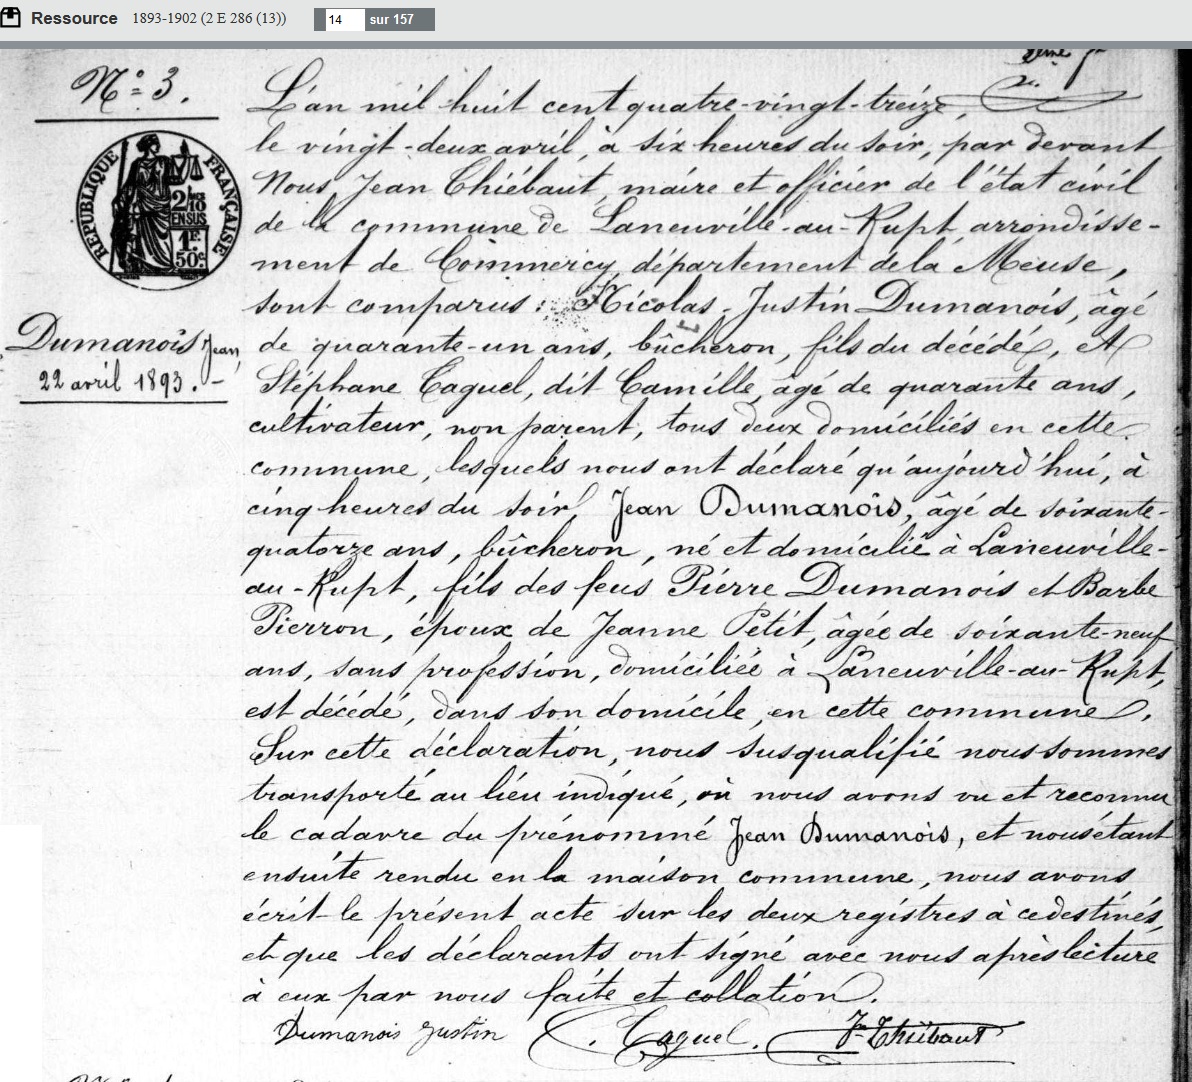 Ressource 1893-1902 (2 E 286 (13)) 14 sur 157
2ème
N° 3.
L'an mil huit cent quatre-vingt-treize,
le vingt-deux avril, à six heures du soir, par devant
Nous, Jean Thiébaut, maire et officier de l'état civil
de la commune de Laneuville-au-Rupt arrondisse-
ment de Commercy, département de la Meuse,
sont comparus : Nicolas-Justin Dumanois, âgé
de quarante-un ans, bûcheron, fils du décédé, et
Stéphane Caquel, dit Camille, âgé de quarante ans,
cultivateur, non parent, tous deux domiciliés en cette
commune, lesquels nous ont déclaré qu'aujourd'hui, à
cinq heures du soir, Jean Dumanois, âgé de soixante-
quatorze ans, bûcheron, né et domicilié à Laneuville-
au-Rupt, fils des feus Pierre Dumanois et Barbe
Pierron, époux de Jeanne Petit, âgée de soixante-neuf
ans, sans profession, domiciliée à Laneuville-au-Rupt,
est décédé, dans son domicile, en cette commune.
Sur cette déclaration, nous susqualifié nous sommes
transporté au lieu indiqué, où nous avons vu et reconnu
le cadavre du prénommé Jean Dumanois, et nous étant
ensuite rendu en la maison commune, nous avons
écrit le présent acte sur les deux registres à ce destinés,
et que les déclarants ont signé avec nous après lecture
à eux par nous faite et collation.
Dumanois Justin C. Caquel. Jn Thiébaut
RÉPUBLIQUE FRANÇAISE
2/10
EN SUS
1F.
50c.
Dumanois Jean,
22 avril 1893.